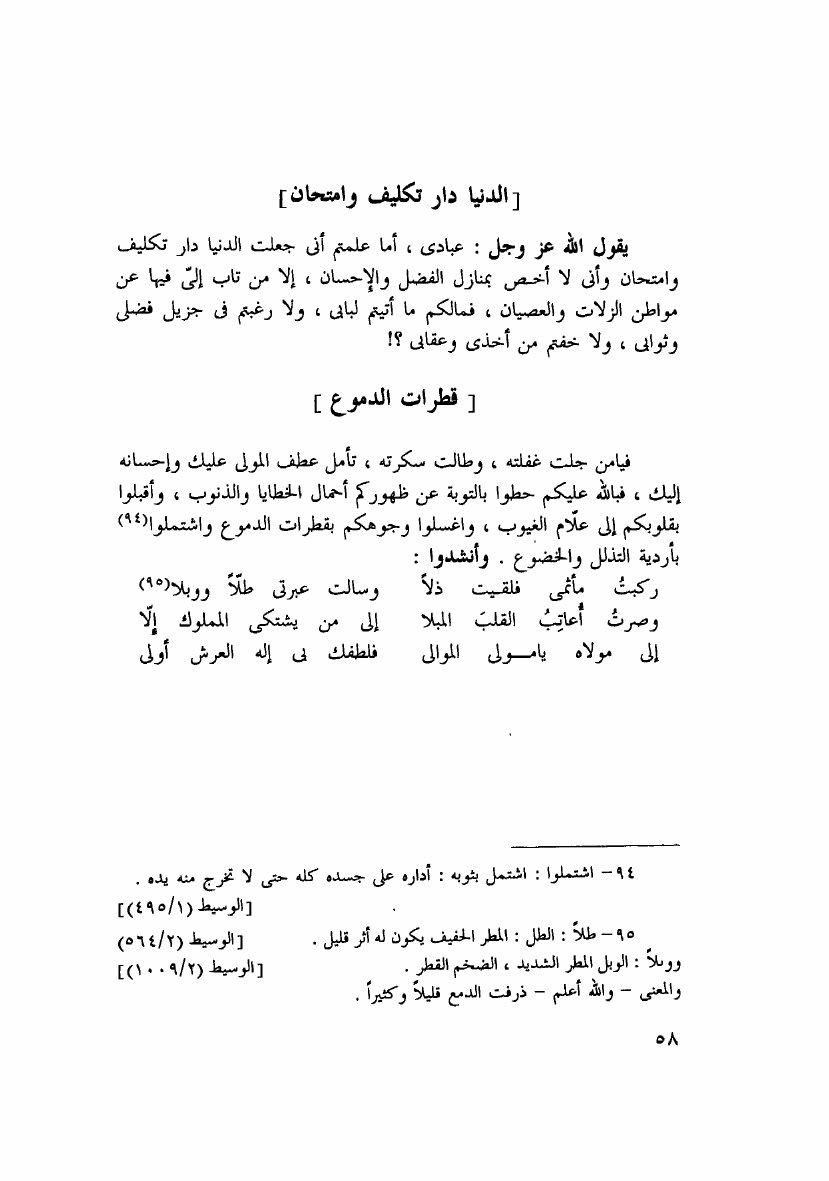 [الدنيا دار تكليف وامتحان]
يقول الله عز وجل : عبادى ، أما علمتم أنى جعلت الدنيا دار تكليف
وامتحان وأنى لا أخص بمنازل الفضل والإحسان ، إلا من تاب إلىّ فيها عن
مواطن الزلات والعصيان ، فمالكم ما أتيتم لبابى ، ولا رغبتم فى جزيل فضلى
وثوابى ، ولا خفتم من أخذى وعقابى ؟!
[ قطرات الدموع ]
فيامن جلت غفلته ، وطالت سكرته ، تأمل عطف المولى عليك وإحسانه
إليك ، فبالله عليكم حطوا بالتوبة عن ظهوركم أحمال الخطايا والذنوب ، وأقبلوا
بقلوبكم إلى علّام الغيوب ، واغسلوا وجوهكم بقطرات الدموع واشتملوا(٩٤)
بأردية التذلل والخضوع . وأنشدوا :
ركبتُ مأثمى فلقيت ذلاً وسالت عبرتى طلّاً ووبلا(٩٥)
وصرتُ أُعاتِبُ القلبَ المبلا إلى من يشتكى المملوك إلّا
إلى مولاه يامـولى الموالى فلطفك بى إله العرش أولى
٩٤– اشتملوا : اشتمل بثوبه : أداره على جسده كله حتى لا تخرج منه يده .
[الوسيط (٤٩٥/١)]
٩٥– طلاً : الطل : المطر الخفيف يكون له أثر قليل . [الوسيط (٥٦٤/٢)
ووبلاً : الوبل المطر الشديد ، الضخم القطر . [الوسيط (١٠٠٩/٢)]
والمعنى – والله أعلم – ذرفت الدمع قليلاً وكثيراً .
٥٨